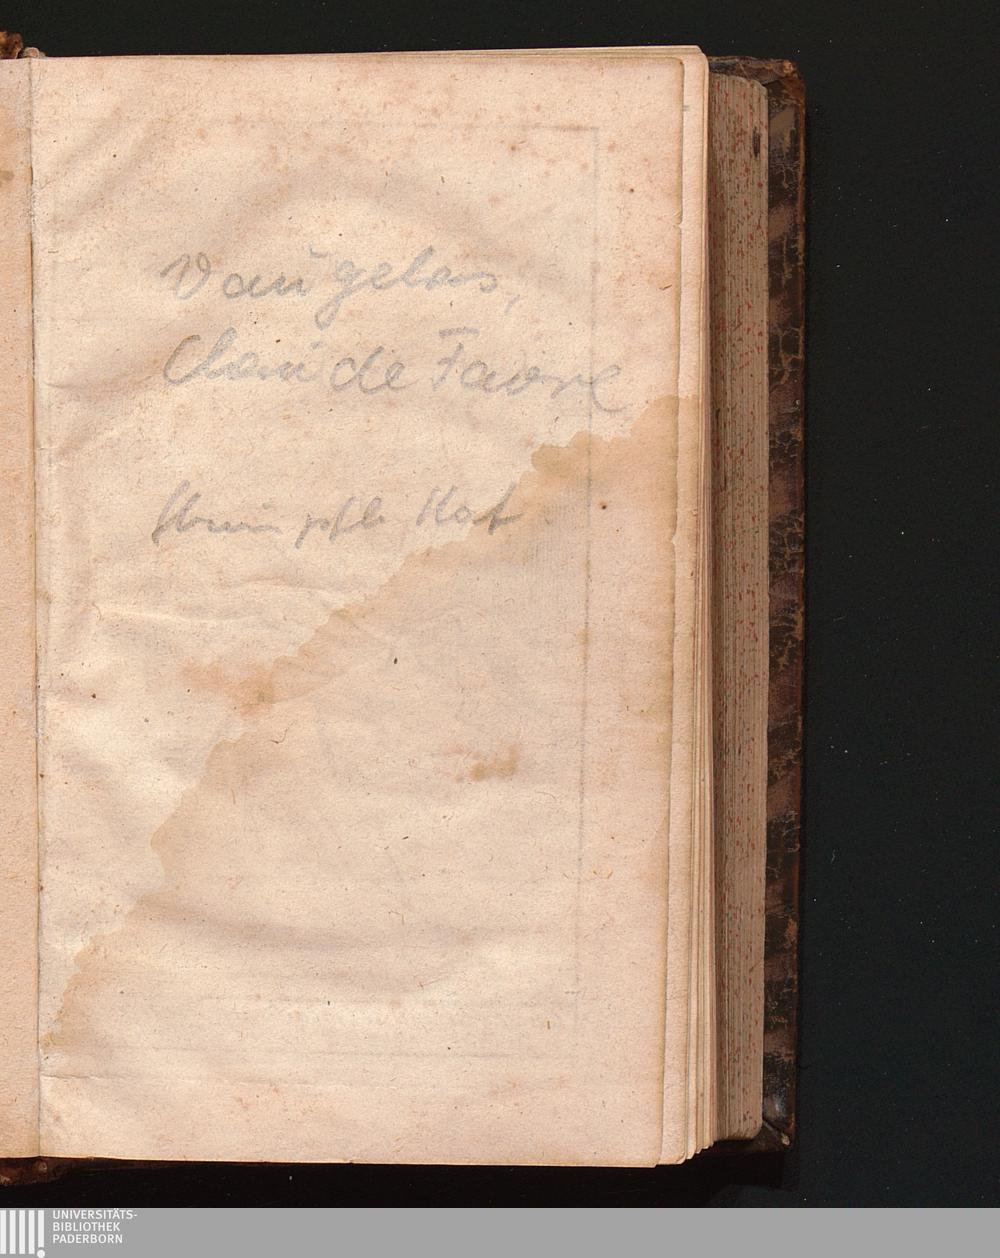 Vaugelas,
Claude Favre
Kat
UNIVERSITÄTS-
BIBLIOTHEK
PADERBORN